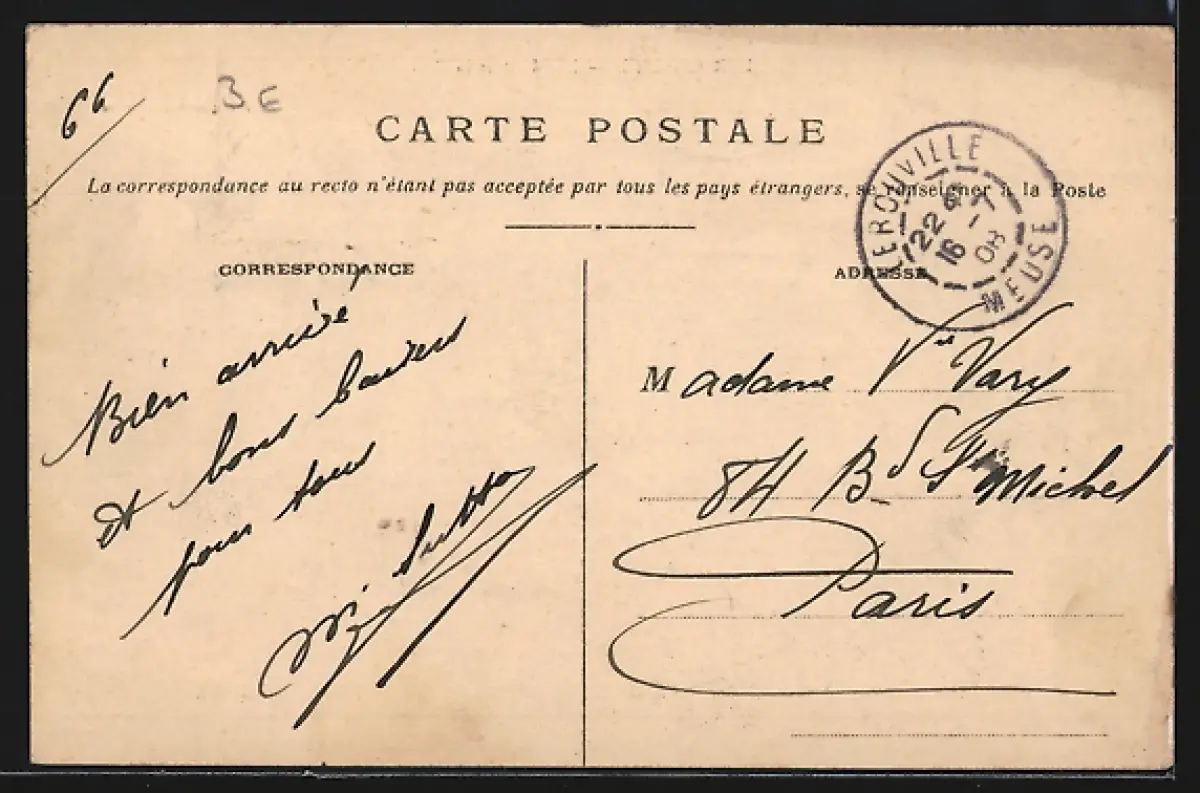 66
BE
CARTE POSTALE
La correspondance au recto n'étant pas acceptée par tous les pays étrangers, se renseigner à la Poste
LEROUVILLE
22
16 -7
08
MEUSE
CORRESPONDANCE
Bien arrivé
et bons baisers
pour tous
ADRESSE
Madame Vve Vary
84 Bd St Michel
Paris